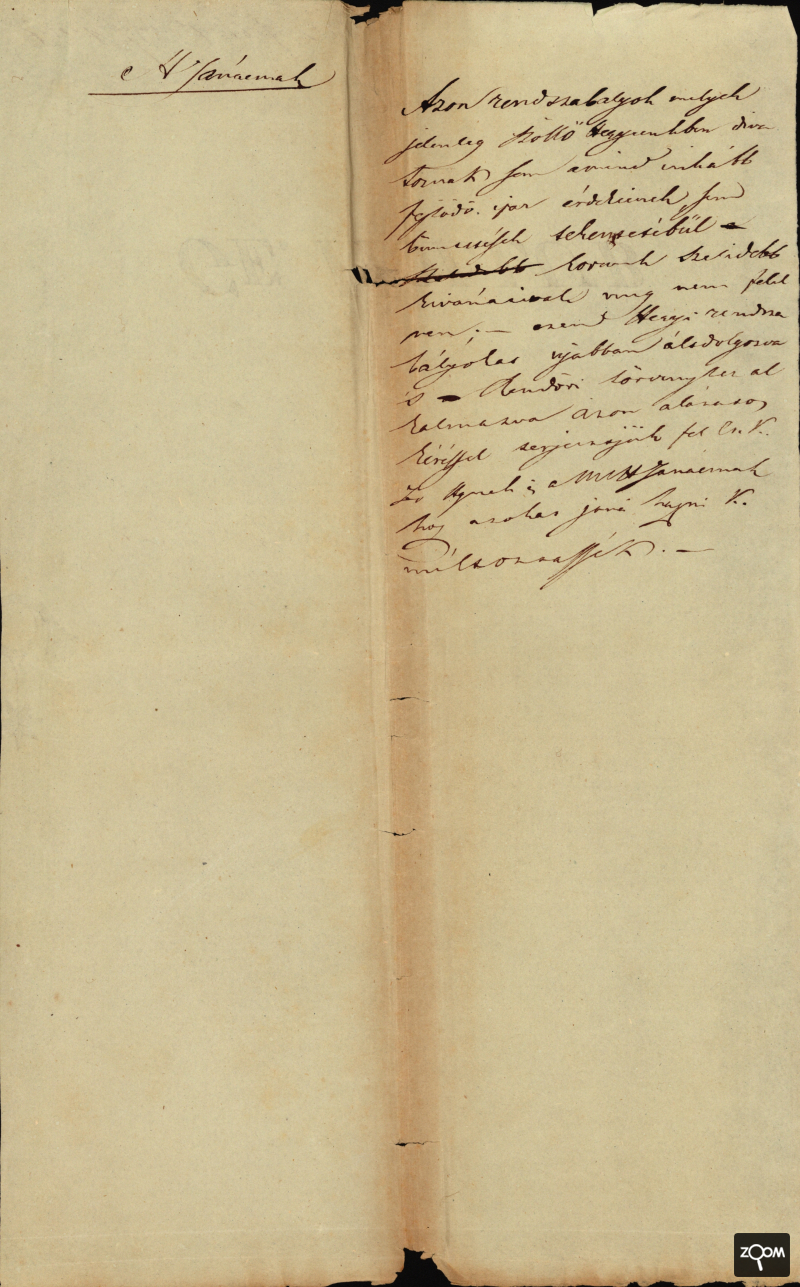 A H Tanácsnak
Azon rendszabályok melyek
jelenleg szőllő Hegyeinkben diva
toznak sem a mind inkább
fejlődő ipar érdekeinek sem
büntetések tekintetéből
korunk szelidebb
kivánásinak meg nem felel
nem; — ezend Hegyi rendsza
bályokat ujabban átdolgozva
s Rendőri törvényhez al
kalmazva azon alázatos
kéréssel terjesztjük fel Cs. K.
a Tanácsnak
hogy azokat jová hagyni K.
méltoztassék. —
ZOOM